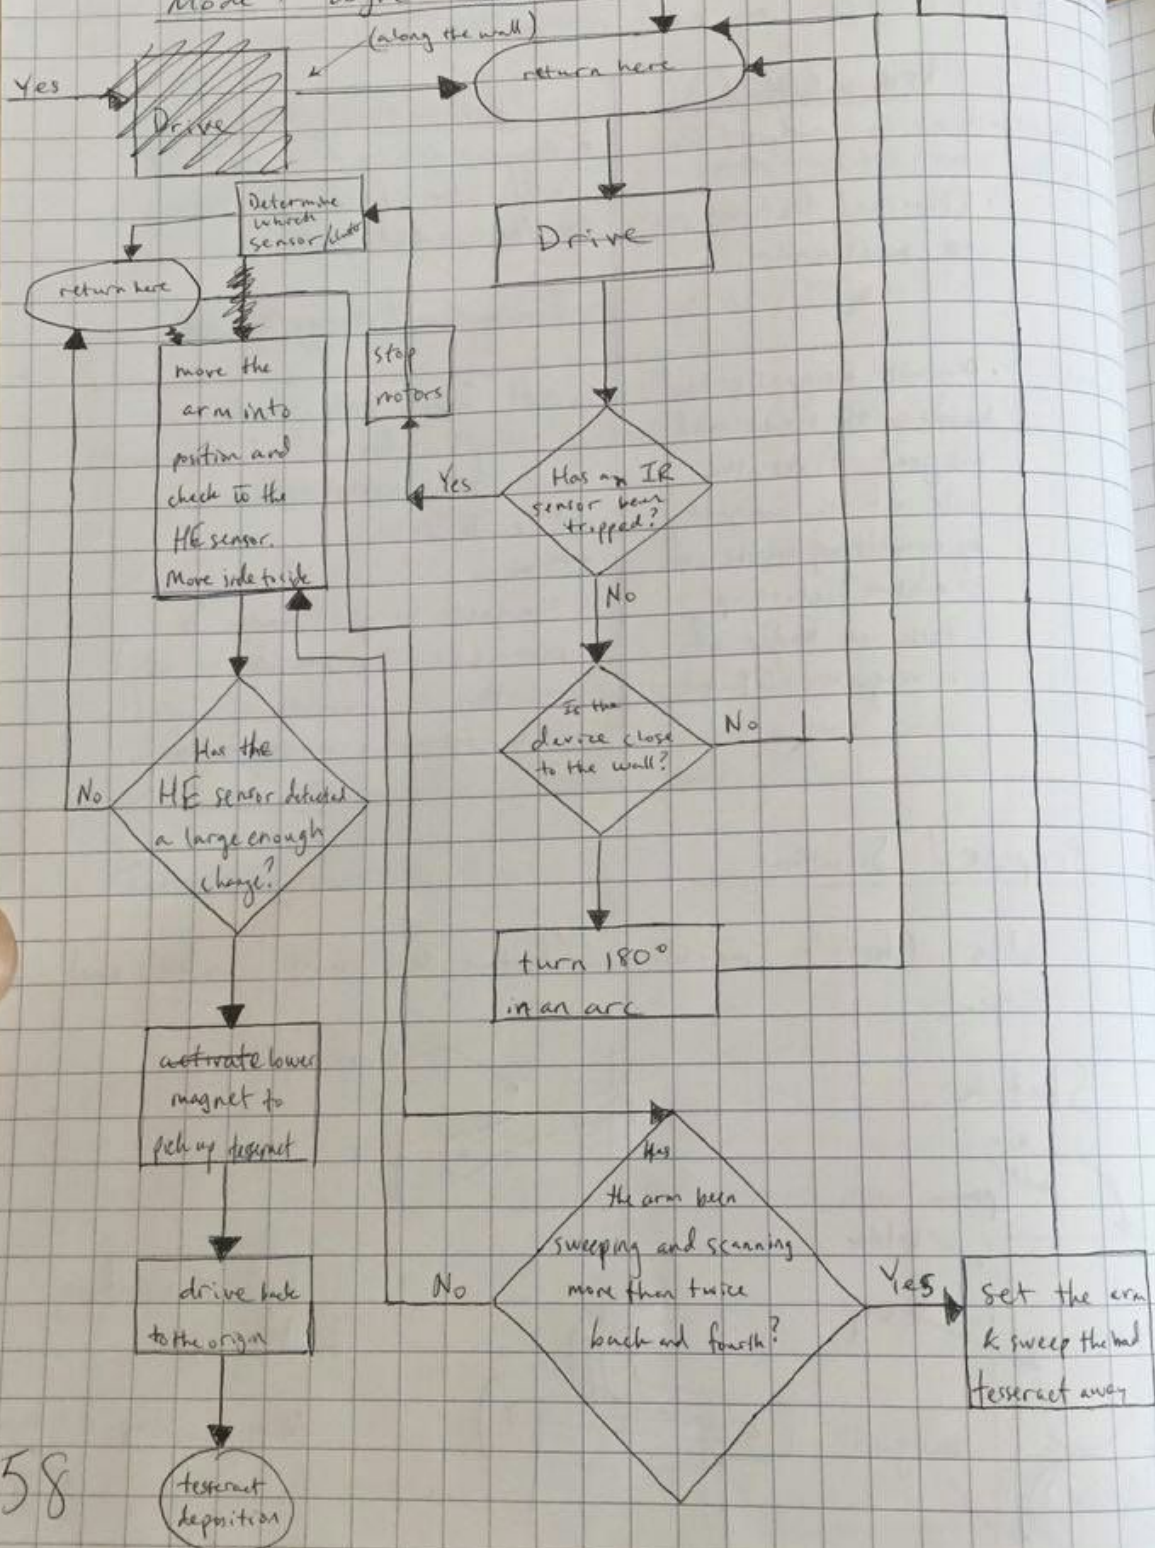 Mode
(along the wall)
Yes
Drive
return here
Determine
which
sensor/
Drive
return here
move the
arm into
position and
check to the
HE sensor.
Move side to side
stop
motors
Yes
Has an IR
sensor been
tripped?
No
Is the
device close
to the wall?
No
Has the
HE sensor detected
a large enough
change?
No
turn 180°
in an arc
activate lower
magnet to
pick up tesseract
Has
the arm been
sweeping and scanning
more than twice
back and fourth?
No
Yes
set the arm
& sweep the bad
tesseract away
drive back
to the origin
tesseract
deposition
58